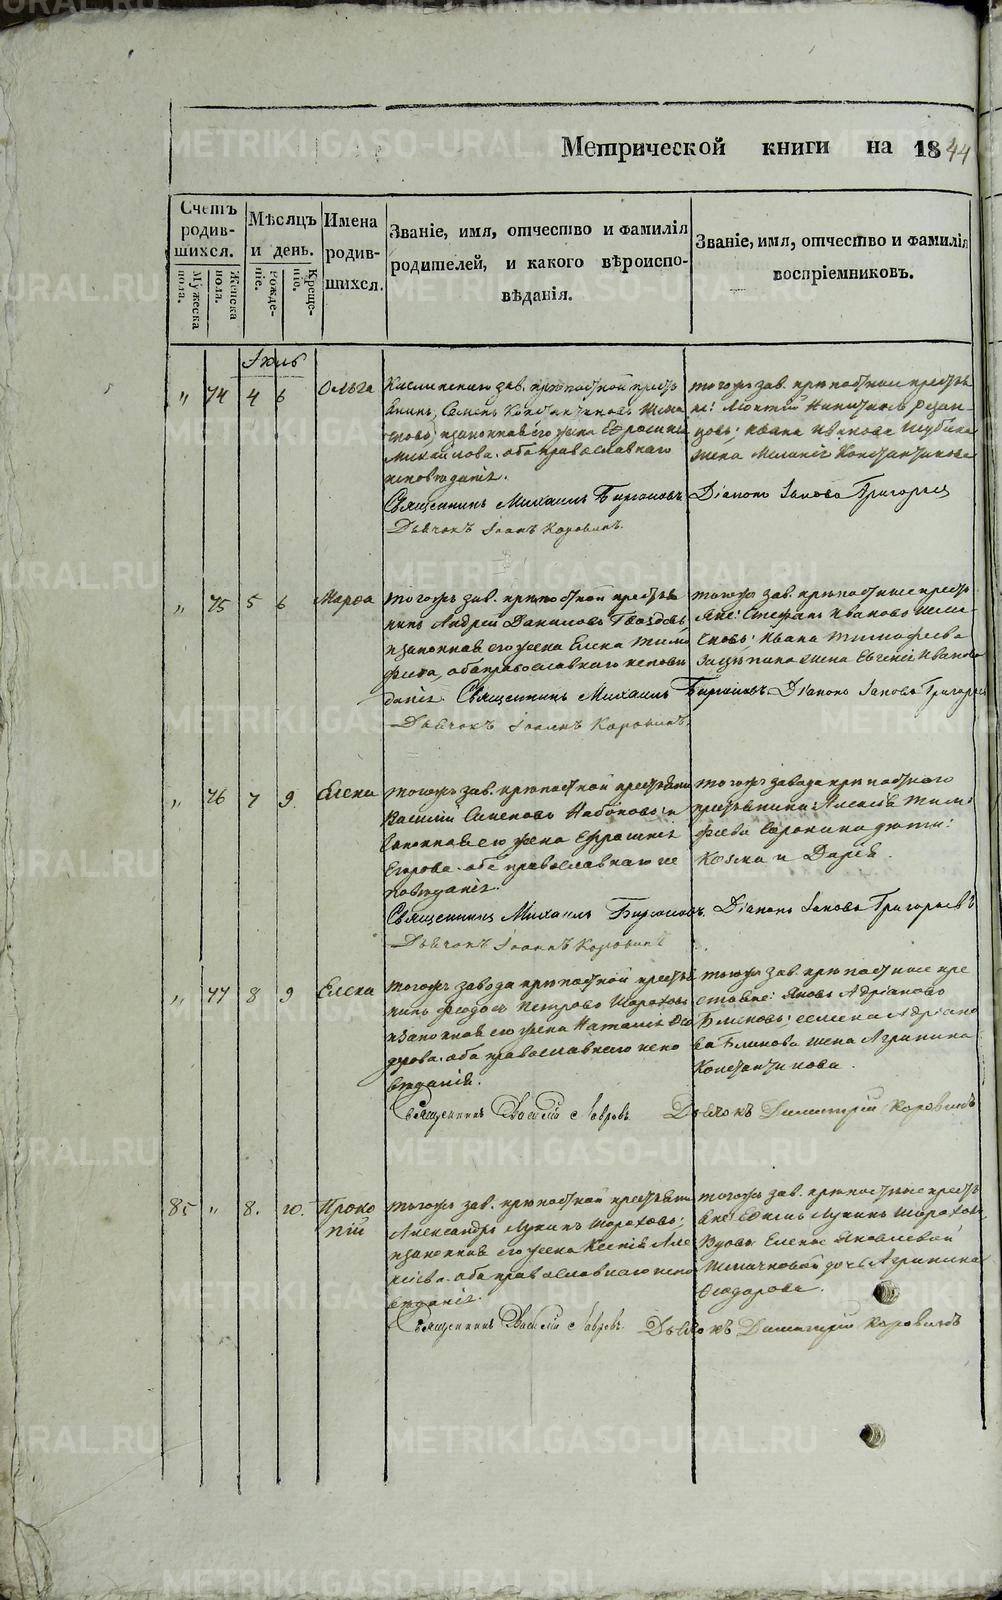 Метрической книги на 1844
Счетъ родив-шихся.
Мужеска пола.
Женска пола.
Мѣсяцъ и день.
Рожде-нiе.
Креще-нiе.
Имена родив-шихся.
Званiе, имя, отчество и фамилiя
родителей, и какого вѣроиспо-
вѣданiя.
Званiе, имя, отчество и фамилiя
воспрiемниковъ.
Iюль
„ 74 4 6 Ольга
зав. крѣпостной крестья
Семенъ Константиновъ
и законная его жена Ефросинiя
Михайлова. оба православнаго
исповѣданiя.
Священникъ Михаилъ
Дьячокъ Iоаннъ Коровинъ.
тогожъ зав. крѣпостные крестья
не: Леонтiй Никитинъ
Ивана Иванова
жена Меланiя Константинова
Дiаконъ Iаковъ Григорьевъ
„ 75 5 6 Марѳа
тогожъ зав. крѣпостной крестья
нинъ Андрей Даниловъ
и законная его жена Елена Тимо
феева, оба православнаго исповѣ
данiя. Священникъ Михаилъ
Дьячокъ Iоаннъ Коровинъ.
тогожъ зав. крѣпостные кресть
яне: Стефанъ Ивановъ
Ивана Тимофеева
жена Евгенiя Иванова
Дiаконъ Iаковъ Григорьевъ
„ 76 7 9. Елена
тогожъ зав. крѣпостной крестьяни
Василiй Семеновъ Набоковъ; и
законная его жена Ефросинiя
Егорова. оба православнаго ис
повѣданiя.
Священникъ Михаилъ
Дьячокъ Iоаннъ Коровинъ
тогожъ завода крѣпостнаго
крестьянина Алексѣя Тимо
феева Сорокина дѣти:
Козма и Дарiя.
Дiаконъ Iаковъ Григорьевъ
„ 77 8 9 Елена
тогожъ завода крѣпостной крестья
нинъ Феодоръ Петровъ Шороховъ
и законная его жена Наталiя Ѳео
дорова. оба православнаго испо
вѣданiя.
Священникъ Василiй Лавровъ
тогожъ зав. крѣпостные кре
стьяне: Яковъ Адрiановъ
Блиновъ; Семена Адрiано
ва Блинова жена Агрипина
Константинова.
Дьячокъ Димитрiй Коровинъ
85 „ 8. 10. Проко
пiй
тогожъ зав. крѣпостной крестьяни
Александръ Лукинъ Шороховъ;
и законная его жена Ксенiя Але
оба православнаго испо
вѣданiя.
Священникъ Василiй Лавровъ
тогожъ зав. крѣпостные кресть
яне: Ефимъ Лукинъ Шороховъ,
Вдовы Елены Яковлевой
дочь Агрипина
Ѳеодорова.
Дьячокъ Димитрiй Коровинъ
METRIKI.GASO-URAL.RU